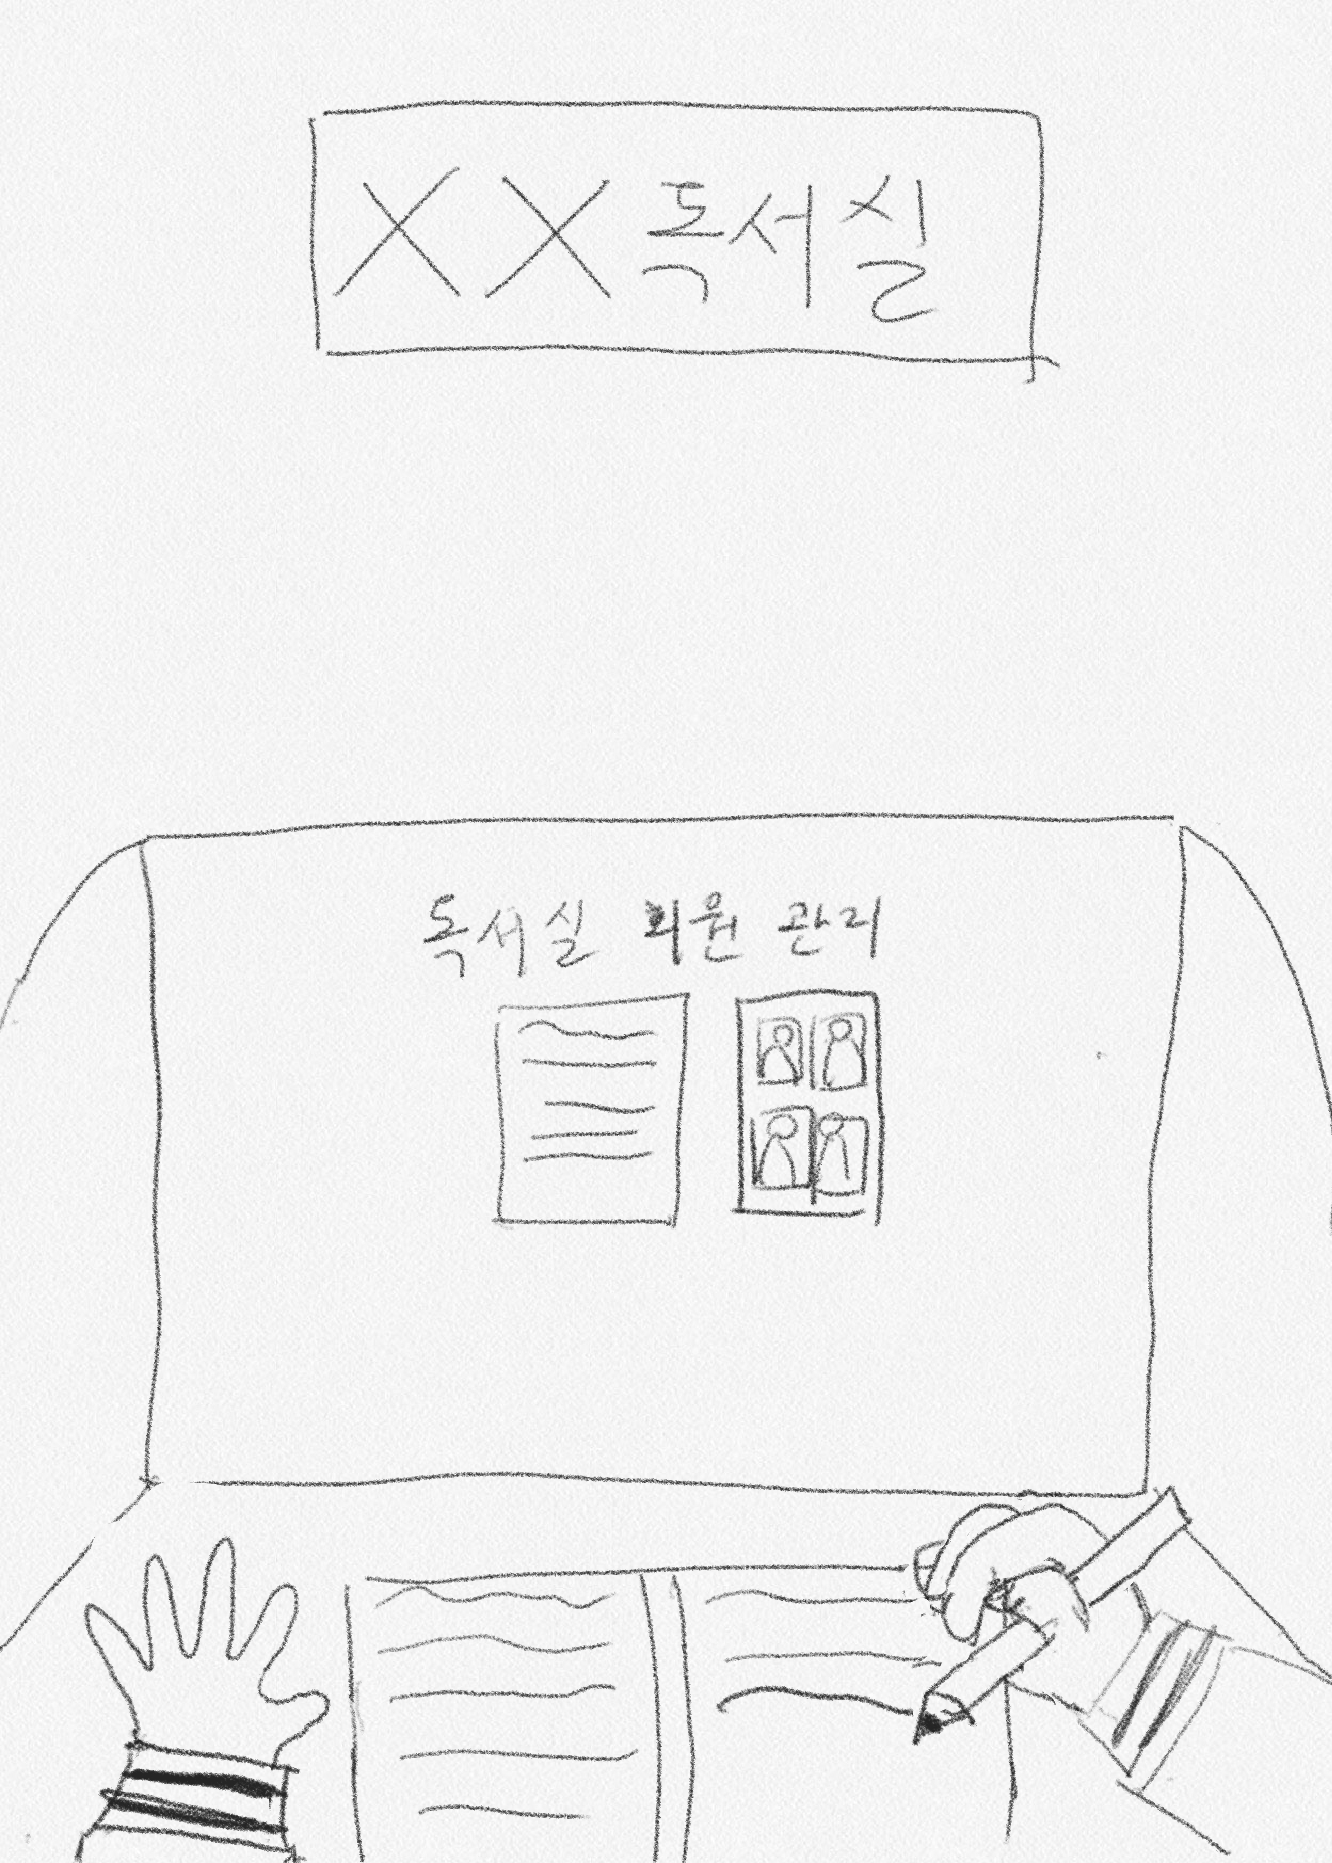 XX독서실
독서실 회원 관리